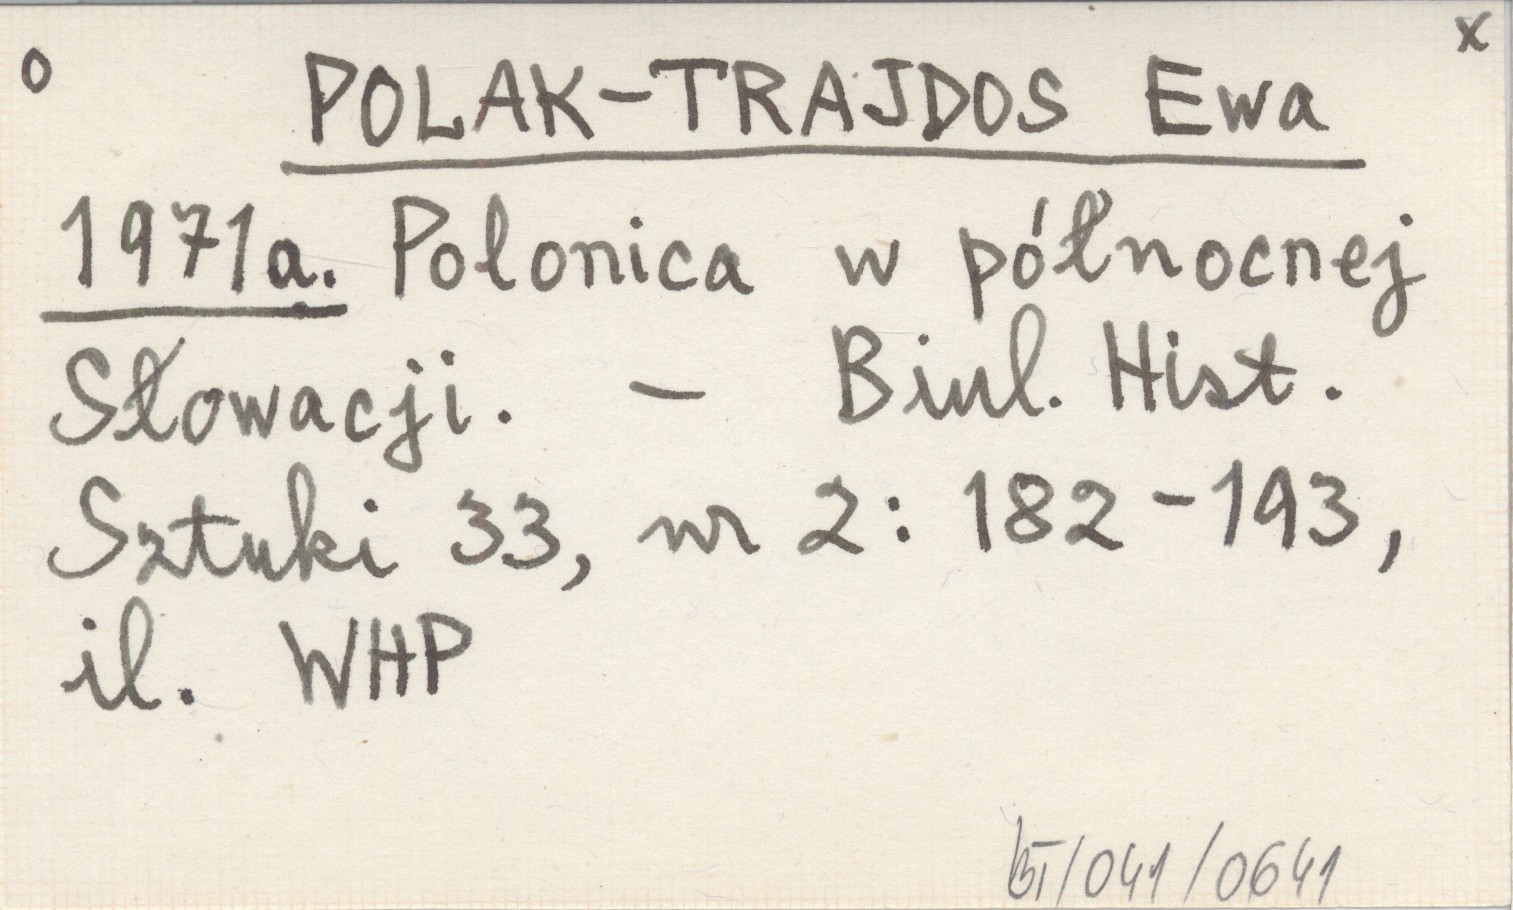 o x
POLAK-TRAJDOS Ewa
1971a. Polonica w północnej
Słowacji. – Biul. Hist.
Sztuki 33, nr 2: 182-193,
il. WHP
BT/041/0641